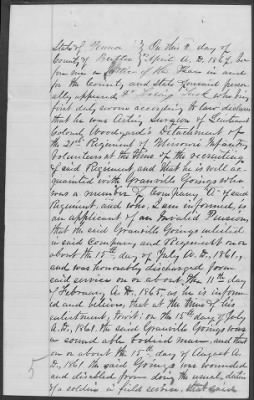 State of Iowa } On this 2 day of
County of } April A.D. 1867, be
fore me a of the Peace in and
for the County and State aforesaid person
ally appeared who being
first duly sworn according to law declares
that he was Acting Surgeon of Lieutenant
Colonel Woodyard's Detachment of
the 21st Regiment of Missouri Infantry
Volunteers at the time of the recruiting
of said Regiment and that he is well ac
quainted with Granville Goings who
was a member of Company of said
Regiment and who, I am informed, is
an applicant of an Invalid Pension,
that the said Granville Goings enlisted
in said Company and Regiment on or
about the 15th day of July A.D. 1861,
and was honorably discharged from
said service on or about the 11th day
of February A.D. 1865 as he is inform
ed and believes, that at the time of his
enlistment, towit: on the 15th day of July
A.D. 1861 the said Granville Goings was
a sound able bodied man, and that
on or about the 15th day of August A.
D. 1861 the said Goings was wounded
and disabled from doing the usual duties
of a soldier in field service, that said
5